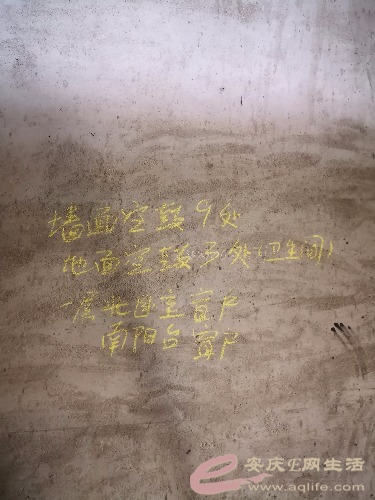 墙面空鼓9处
地面空鼓3处(卫生间)
一层北卧室窗户
南阳台窗户
安庆e网生活
www.aqlife.com